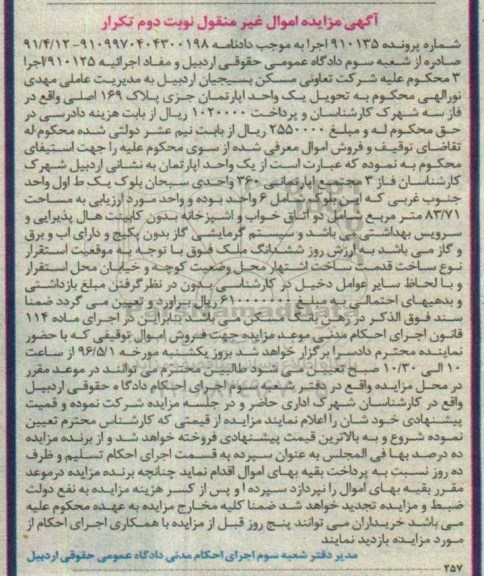 آگهی مزایده اموال غیر منقول نوبت دوم تکرار
شماره پرونده ۹۱۰۱۳۵ اجرا به موجب دادنامه ۹۱۰۹۹۷۰۴۰۴۳۰۰۱۹۸-۹۱/۴/۱۲
صادره از شعبه سوم دادگاه عمومی حقوقی اردبیل و مفاد اجرائیه ۹۱۰۱۲۵/اجرا
۳ محکوم علیه شرکت تعاونی مسکن بسیجیان اردبیل به مدیریت عاملی مهدی
نورالهی محکوم به تحویل یک واحد اپارتمان جزی پلاک ۱۶۹ اصلی واقع در
فاز سه شهرک کارشناسان و پرداخت ۱۰۲۰۰۰۰ ریال از بابت هزینه دادرسی در
حق محکوم له و مبلغ ۲۵۵۰۰۰۰ ریال از بابت نیم عشر دولتی شده محکوم له
تقاضای توقیف و فروش اموال معرفی شده از سوی محکوم علیه را جهت استیفای
محکوم به نموده که عبارت است از یک واحد اپارتمان به نشانی اردبیل شهرک
کارشناسان فاز ۳ مجتمع اپارتمانی ۳۶۰ واحدی سبحان بلوک یک ط اول واحد
جنوب غربی که این بلوک شامل ۶ واحد بوده و واحد مورد ارزیابی به مساحت
۸۳/۷۱ متر مربع شامل دو اتاق خواب و اشپزخانه بدون کابینت هال پذیرایی و
سرویس بهداشتی می باشد و سیستم گرمایشی گاز بدون پکیج و دارای اب و برق
و گاز می باشد به ارزش روز ششدانگ ملک فوق با توجه به موقعیت استقرار
نوع ساخت قدمت ساخت اشتهار محل وضعیت کوچه و خیابان محل استقرار
و با لحاظ سایر عوامل دخیل در کارشناسی بدون در نظر گرفتن مبلغ بازداشتی
و بدهیهای احتمالی به مبلغ ۶۱۰۰۰۰۰۰۰ ریال براورد و تعیین می گردد ضمنا
سند فوق الذکر در رهن بانک مسکن می باشد بنابراین در اجرای ماده ۱۱۴
قانون اجرای احکام مدنی موعد مزایده جهت فروش اموال توقیفی که با حضور
نماینده محترم دادسرا برگزار خواهد شد بروز یکشنبه مورخه ۹۶/۵/۱ از ساعت
۱۰ الی ۱۰/۳۰ صبح تعیین می شود طالبین محترم می توانند در موعد مقرر
در محل مزایده واقع در دفتر شعبه سوم اجرای احکام دادگاه حقوقی اردبیل
واقع در کارشناسان شهرک اداری حاضر و در جلسه مزایده شرکت نموده و قمیت
پیشنهادی خود شان را اعلام نمایند مزایده از قیمتی که کارشناس محترم تعیین
نموده شروع و به بالاترین قیمت پیشنهادی فروخته خواهد شد و از برنده مزایده
ده درصد بها فی المجلس به عنوان سپرده به قسمت اجرای احکام تسلیم و ظرف
ده روز نسبت به پرداخت بقیه بهای اموال اقدام نماید چنانچه برنده مزایده درموعد
مقرر بقیه بهای اموال را نپردازد سپرده او پس از کسر هزینه مزایده به نفع دولت
ضبط و مزایده تجدید خواهد شد ضمنا کلیه مخارج مزایده به عهده محکوم علیه
می باشد خریداران می توانند پنج روز قبل از مزایده با همکاری اجرای احکام از
مورد مزایده بازدید نمایند
مدیر دفتر شعبه سوم اجرای احکام مدنی دادگاه عمومی حقوقی اردبیل
۲۵۷